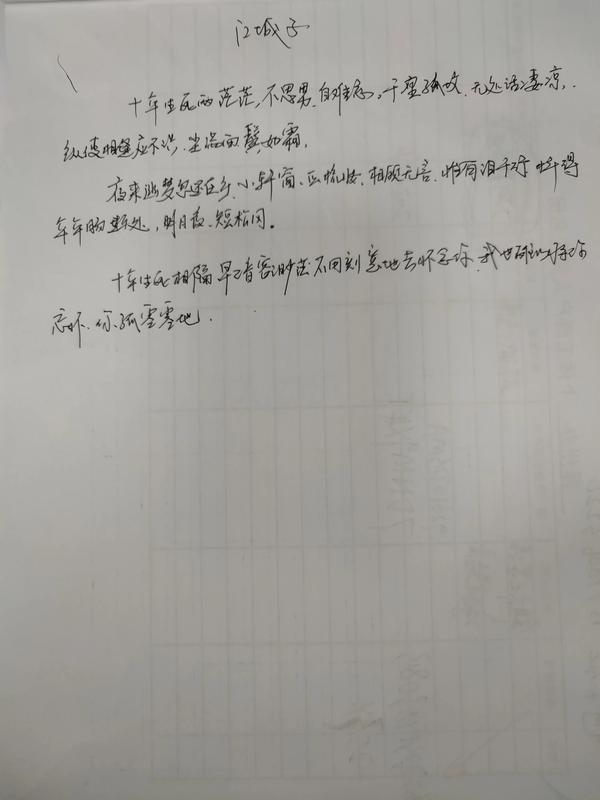 江城子
十年生死两茫茫,不思量,自难忘,千里孤坟,无处话凄凉.
纵使相逢应不识,尘满面,鬓如霜.
夜来幽梦忽还乡,小轩窗,正梳妆,相顾无言,惟有泪千行,料得
年年肠断处,明月夜,短松冈。
十年生死相隔早已音容渺茫不用刻意地去怀念你,我也难以将你
忘怀.你孤零零地.